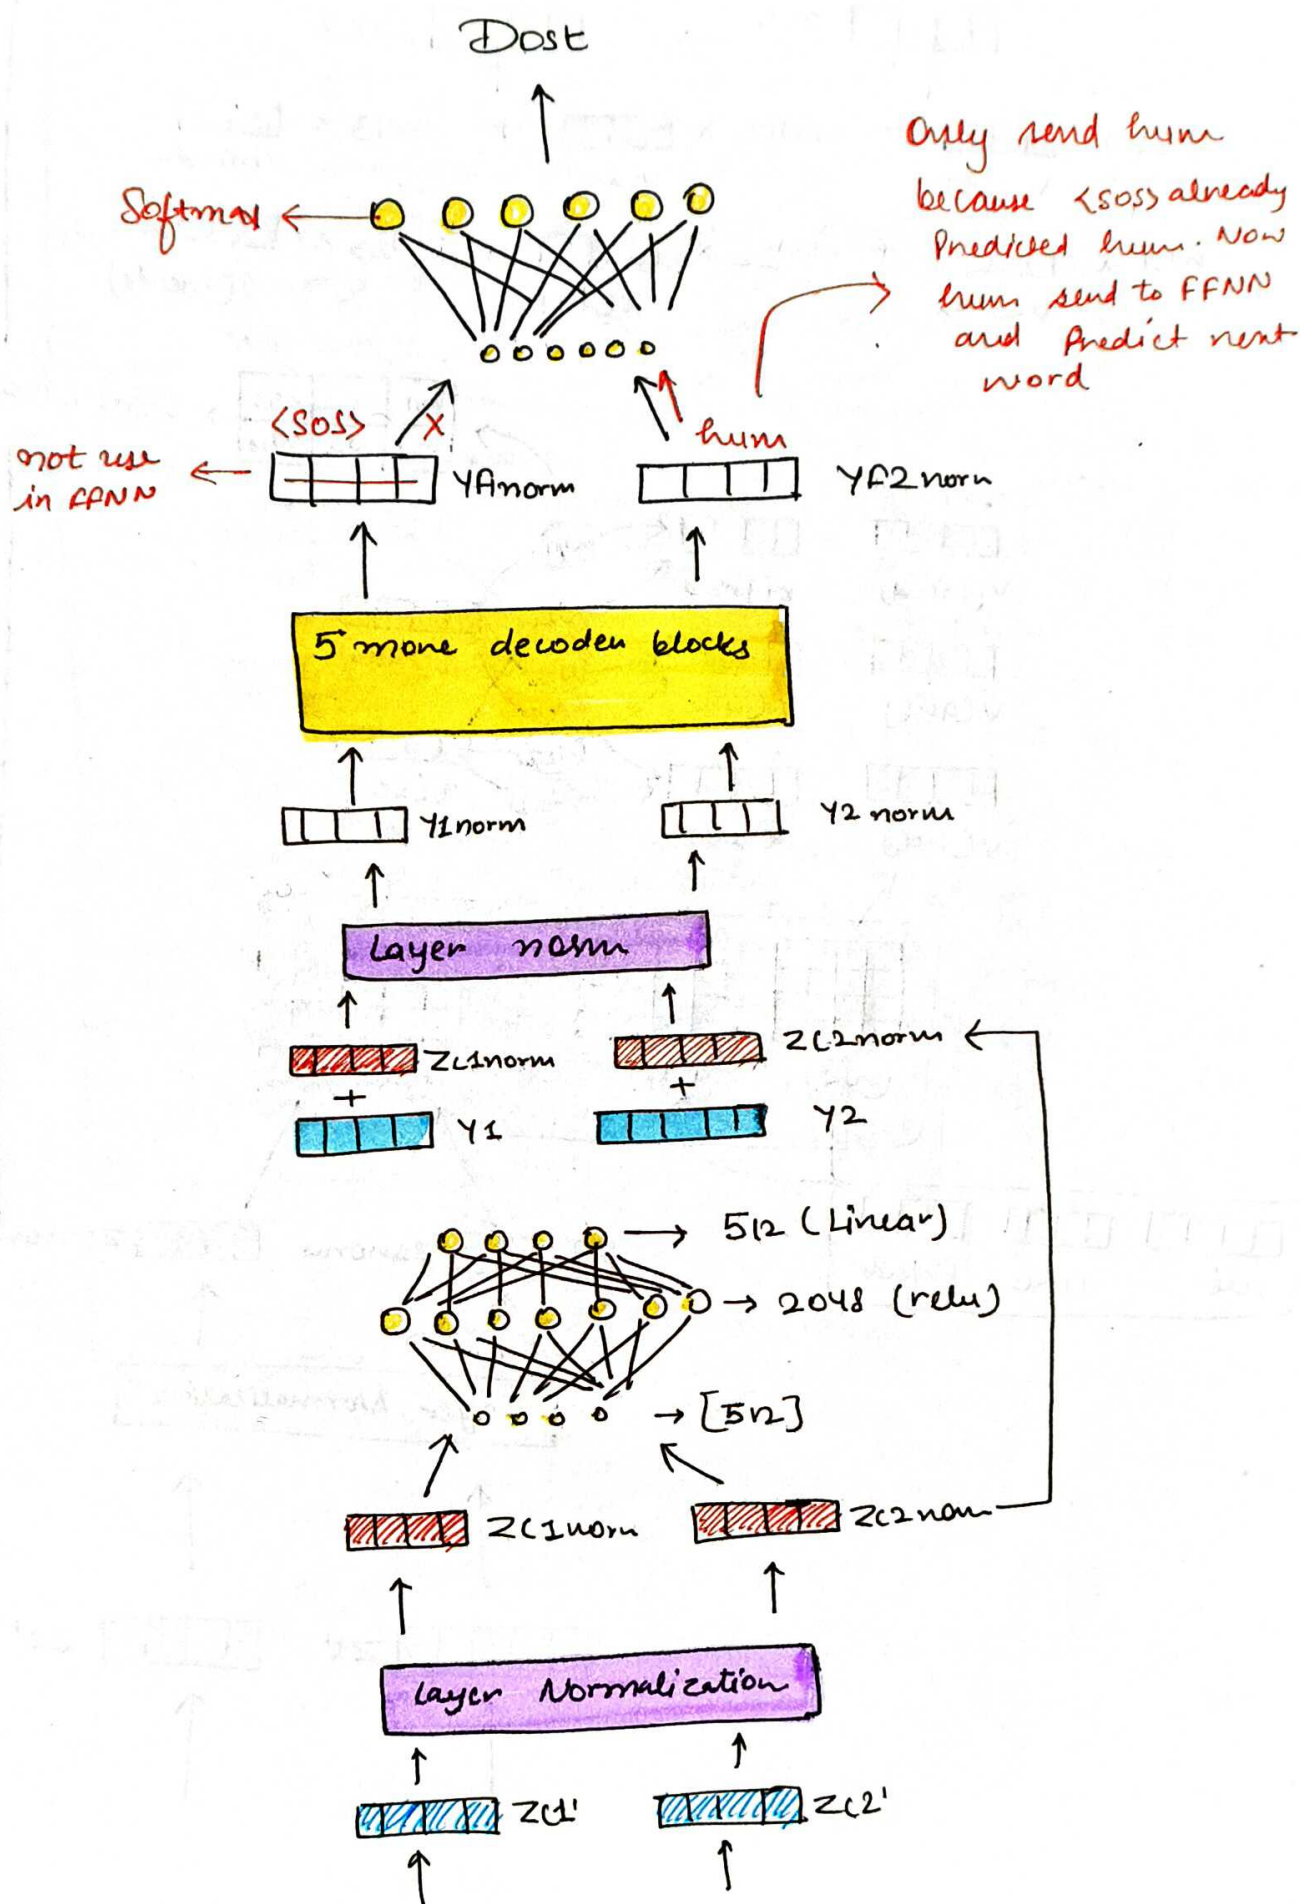 Dost
Softmax
Only send hum
because <SOS> already
Predicted hum. Now
hum send to FFNN
and Predict next
word
<SOS>
X
hum
not use
in FFNN
Yf1norm
Yf2norm
5 more decoder blocks
Y1norm
Y2 norm
Layer norm
ZC1norm
ZC2norm
+
+
Y1
Y2
512 (Linear)
2048 (relu)
[512]
ZC1norm
ZC2norm
Layer Normalization
ZC1'
ZC2'